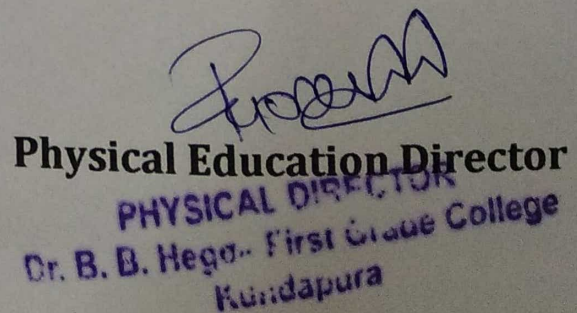 Physical Education Director
PHYSICAL DIRECTOR
Dr. B. B. Hegd.. First Grade College
Kundapura